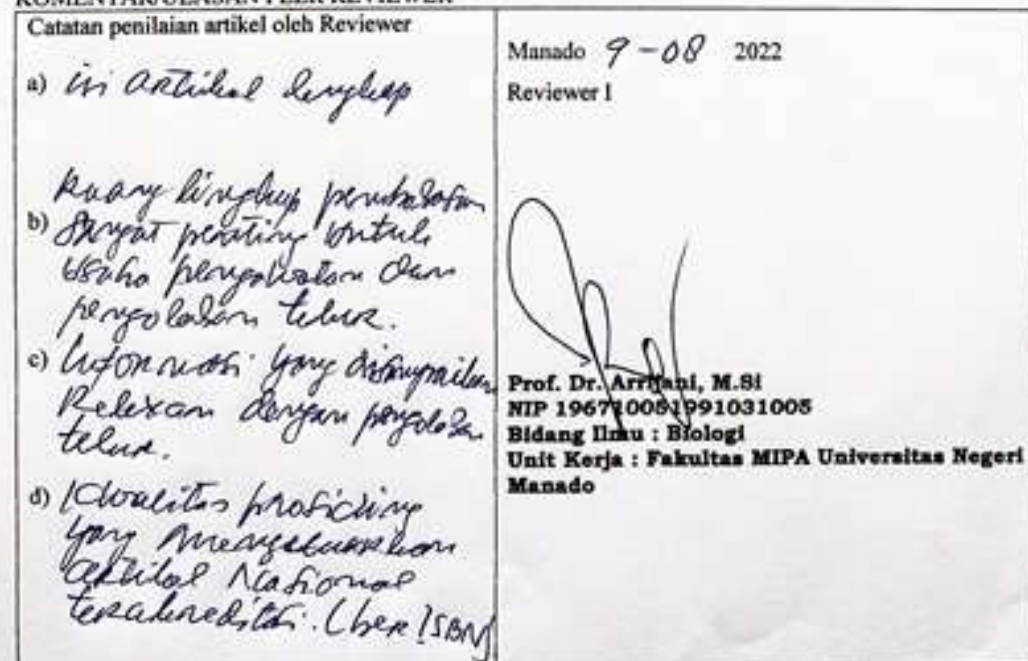 KOMENTAR/ULASAN PEER REVIEWER
Catatan penilaian artikel oleh Reviewer
a) isi artikel lengkap
Ruang lingkup pembahasan
b) sangat penting untuk
usaha pengawetan dan
pengolahan telur.
c) Informasi yang disampaikan
Relevan dengan pengolahan
telur.
d) Kwalitas prosiding
yang mengeluarkan
artikel Nasional
terakreditasi. (ber ISBN)
Manado 9-08 2022
Reviewer I
Prof. Dr. Arrijani, M.Si
NIP 196710051991031005
Bidang Ilmu : Biologi
Unit Kerja : Fakultas MIPA Universitas Negeri
Manado